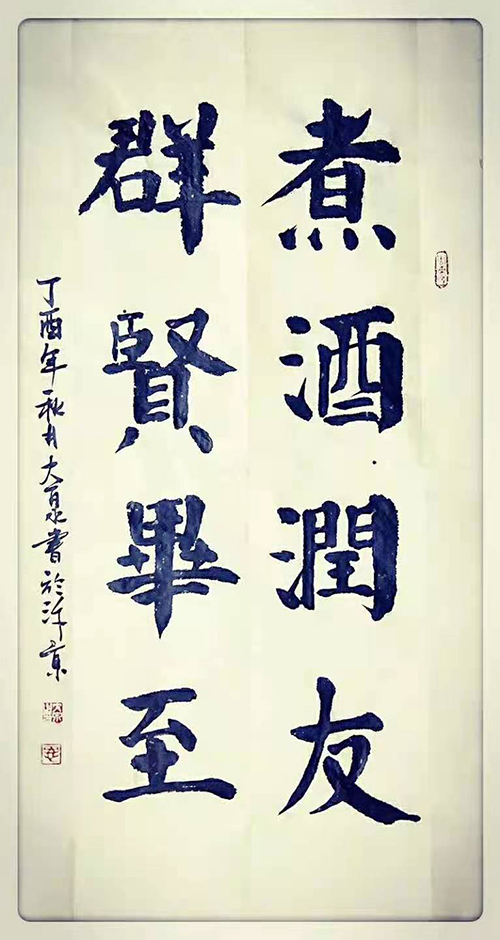 煮酒潤友
群賢畢至
丁酉年秋月大泉書於汴京